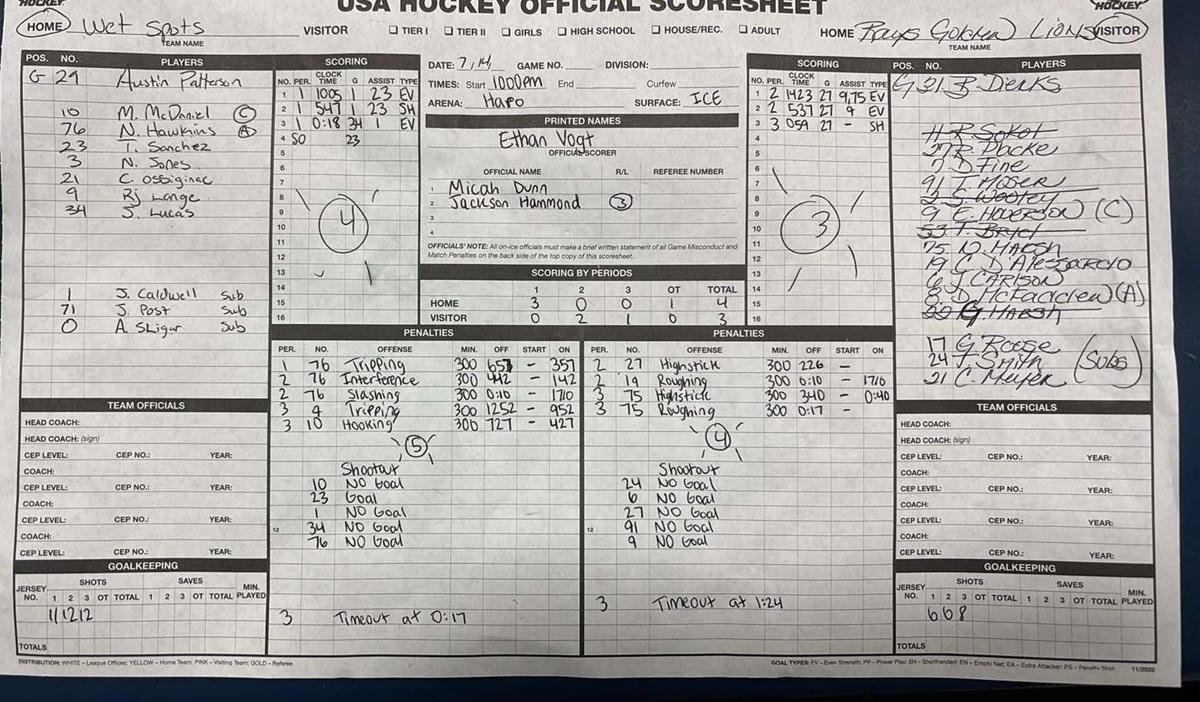 HOCKEY
USA HOCKEY OFFICIAL SCORESHEET
HOCKEY
HOME Wet Spots VISITOR
TEAM NAME
☐ TIER I ☐ TIER II ☐ GIRLS ☐ HIGH SCHOOL ☐ HOUSE/REC. ☐ ADULT
HOME Rays Golden Lions VISITOR
TEAM NAME
POS. NO. PLAYERS
G 29 Austin Patterson
10 M. McDaniel (C)
76 N. Hawkins (A)
23 T. Sanchez
3 N. Jones
21 C. Ossiginac
9 Rj Lange
34 J. Lucas
1 J. Caldwell Sub
71 J. Post Sub
0 A. Sligar Sub
SCORING
NO. PER. CLOCK TIME G ASSIST TYPE
1 1 1005 1 23 EV
2 1 547 1 23 SH
3 1 0:18 34 1 EV
4 SO 23
5
6
7
8
9
10
11
12
13
14
15
16
4
DATE: 7/14 GAME NO. DIVISION:
TIMES: Start 1000pm End Curfew
ARENA: Hapo SURFACE: ICE
PRINTED NAMES
Ethan Vogt
OFFICIAL SCORER
OFFICIAL NAME R/L REFEREE NUMBER
1 Micah Dunn
2 Jackson Hammond 3
3
4
OFFICIALS' NOTE: All on-ice officials must make a brief written statement of all Game Misconduct and
Match Penalties on the back side of the top copy of this scoresheet.
SCORING BY PERIODS
1 2 3 OT TOTAL
HOME 3 0 0 1 4
VISITOR 0 2 1 0 3
SCORING
NO. PER. CLOCK TIME G ASSIST TYPE
1 2 1423 27 9,75 EV
2 2 537 27 9 EV
3 3 059 27 - SH
4
5
6
7
8
9
10
11
12
13
14
15
16
3
POS. NO. PLAYERS
G 31 B Dierks
11 R Sokol
27 R. Packe
7 D Fine
91 T. Moser
2 S. Wooley
9 E. Hoverson (C)
53 T. Bryct
75 D. Marsh
19 C D'Alessandro
6 J CARLSON
8. D. McFadden (A)
22 G Harsh
17 G. Roose
24 T. Smith (Subs)
21 C. Meyer
PENALTIES
PER. NO. OFFENSE MIN. OFF START ON
1 76 Tripping 300 657 - 357
2 76 Interference 300 442 - 142
2 76 Slashing 300 0:10 - 1710
3 4 Tripping 300 1252 - 952
3 10 Hooking 300 727 - 427
5
Shootout
10 NO Goal
23 Goal
1 NO Goal
12 34 NO Goal
76 NO Goal
3 Timeout at 0:17
PENALTIES
PER. NO. OFFENSE MIN. OFF START ON
2 27 Highstick 300 226 -
2 19 Roughing 300 0:10 - 1710
3 75 Highstick 300 340 - 0:40
3 75 Roughing 300 0:17 -
4
Shootout
24 NO Goal
6 NO Goal
27 NO Goal
12 91 NO Goal
9 NO Goal
3 Timeout at 1:24
TEAM OFFICIALS
HEAD COACH:
HEAD COACH: (sign)
CEP LEVEL: CEP NO.: YEAR:
COACH:
CEP LEVEL: CEP NO.: YEAR:
COACH:
CEP LEVEL: CEP NO.: YEAR:
COACH:
CEP LEVEL: CEP NO.: YEAR:
GOALKEEPING
SHOTS SAVES
JERSEY NO. 1 2 3 OT TOTAL 1 2 3 OT TOTAL MIN. PLAYED
11 12 12
TOTALS
TEAM OFFICIALS
HEAD COACH:
HEAD COACH: (sign)
CEP LEVEL: CEP NO.: YEAR:
COACH:
CEP LEVEL: CEP NO.: YEAR:
COACH:
CEP LEVEL: CEP NO.: YEAR:
COACH:
CEP LEVEL: CEP NO.: YEAR:
GOALKEEPING
SHOTS SAVES
JERSEY NO. 1 2 3 OT TOTAL 1 2 3 OT TOTAL MIN. PLAYED
6 0 8
TOTALS
DISTRIBUTION: WHITE – League Offices; YELLOW – Home Team; PINK – Visiting Team; GOLD – Referee
GOAL TYPES: EV – Even Strength; PP – Power Play; SH – Shorthanded; EN – Empty Net; EA – Extra Attacker; PS – Penalty Shot